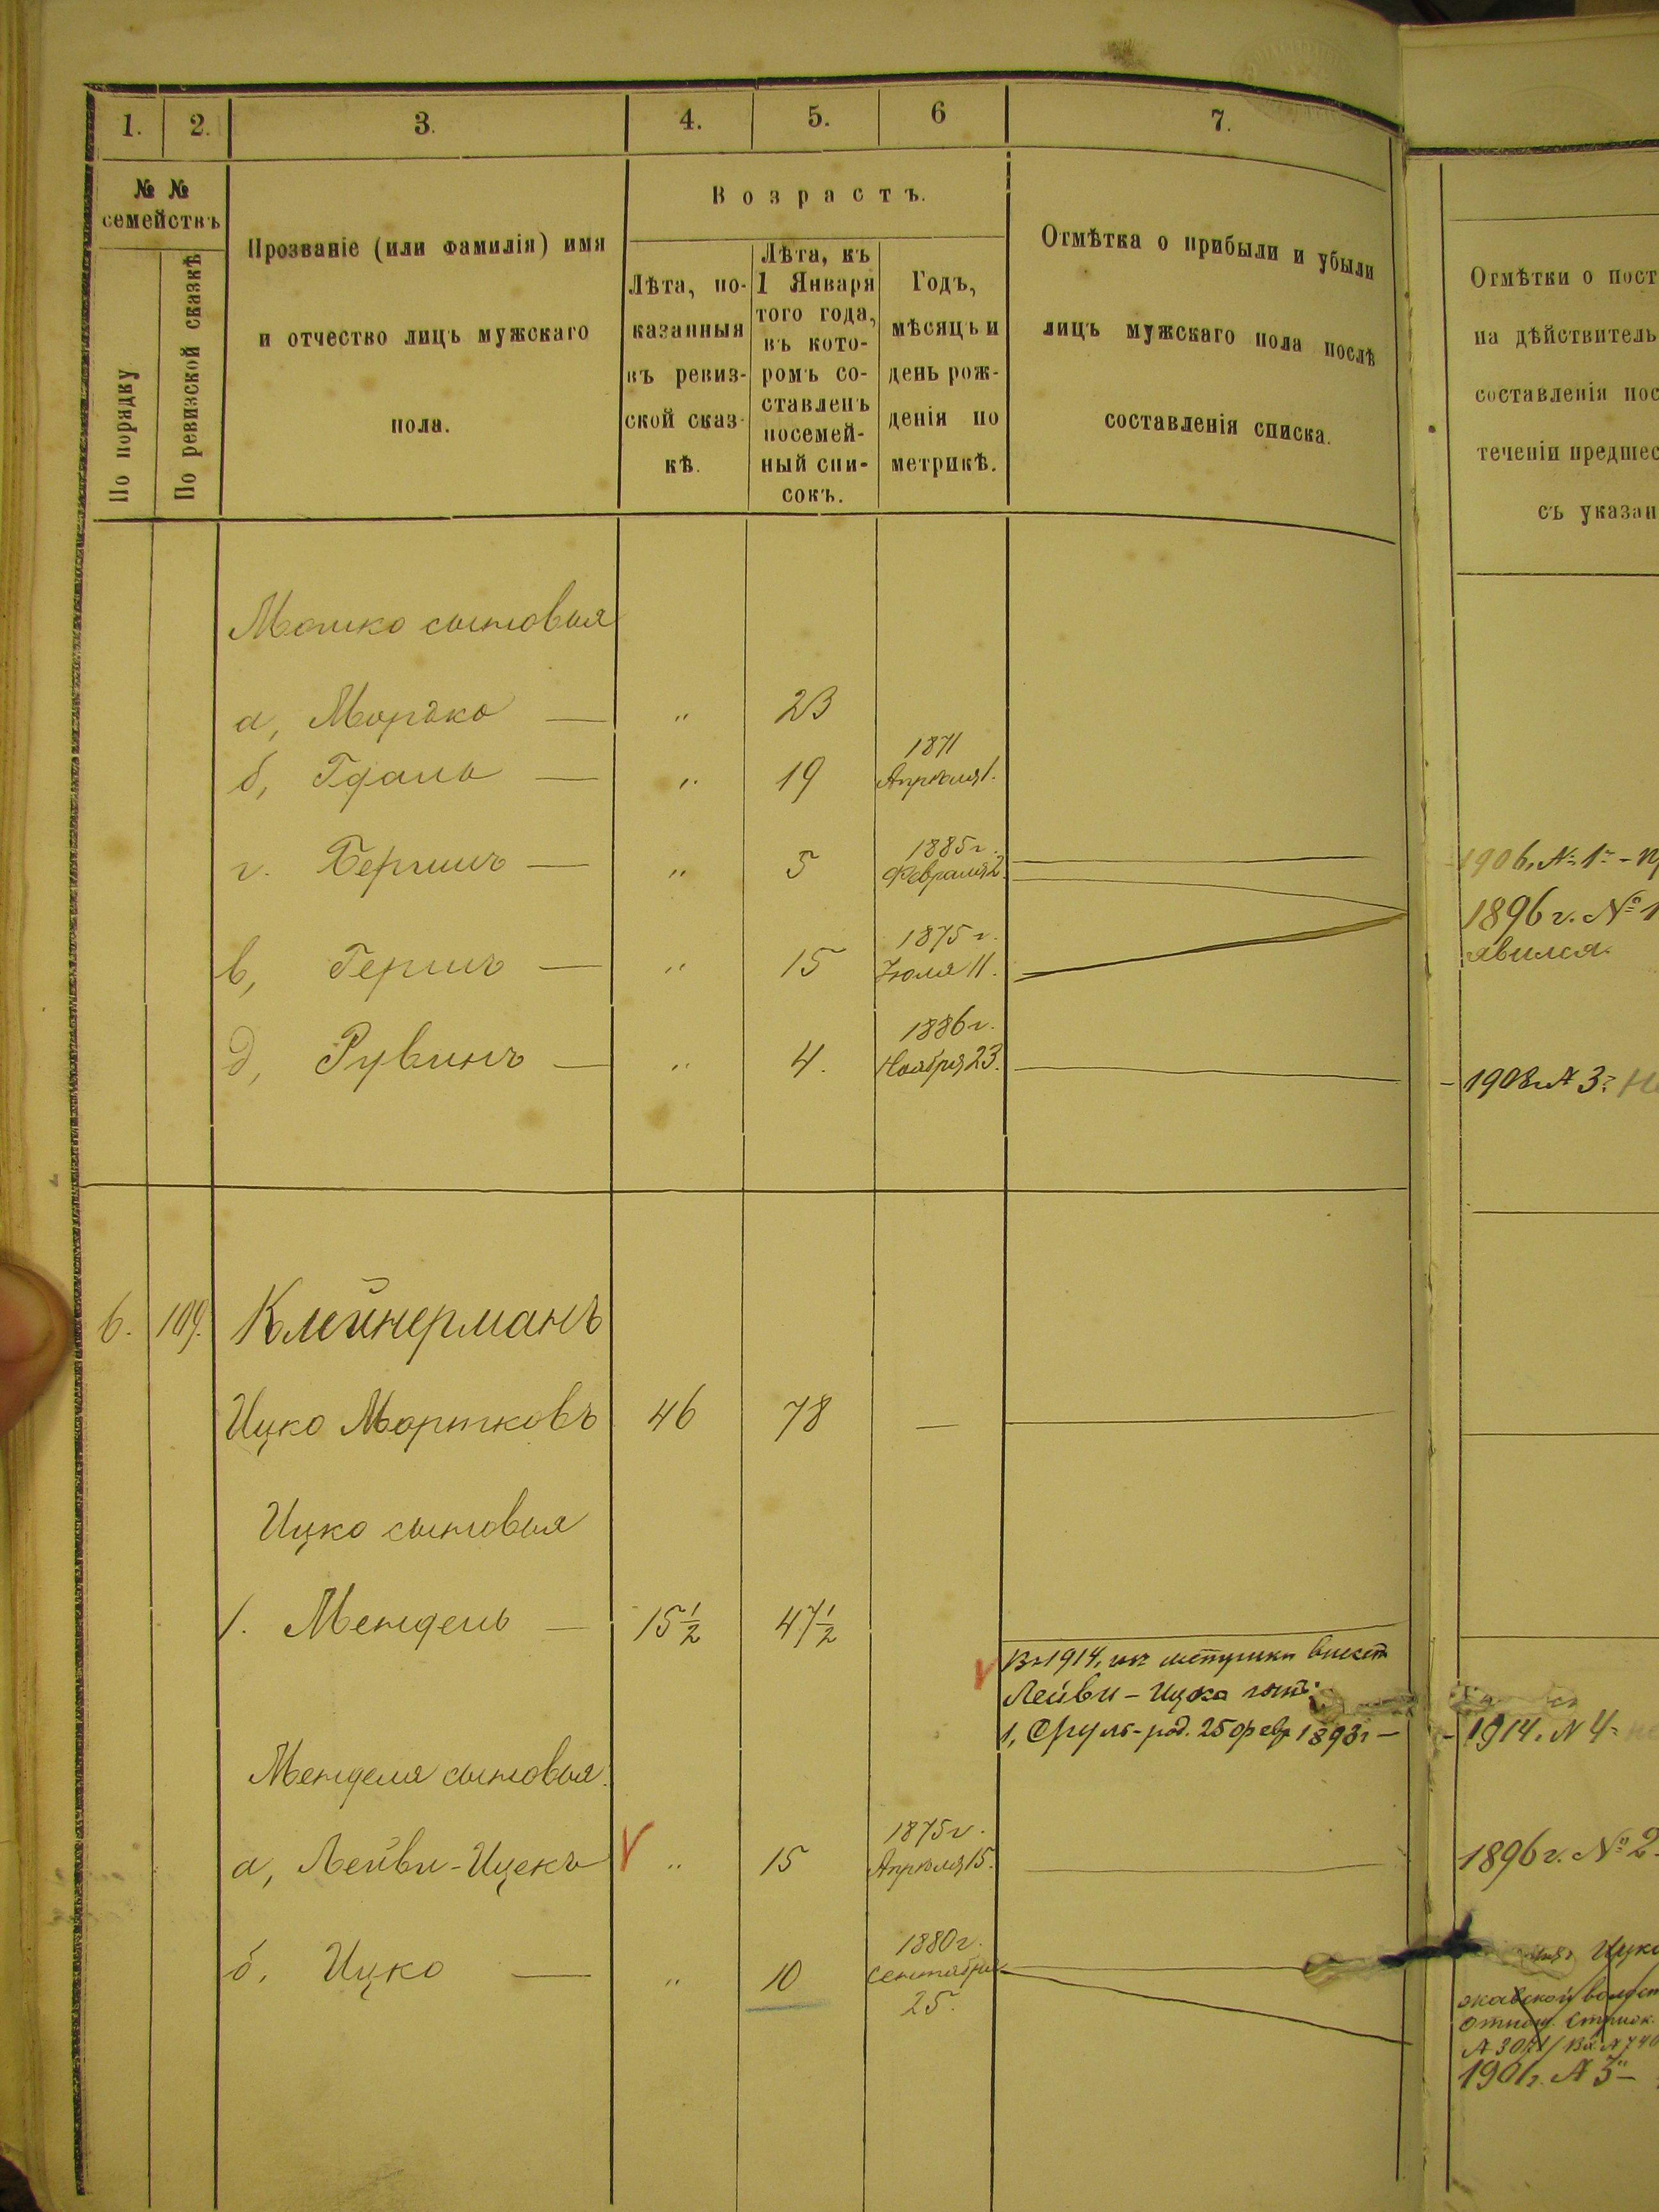 1. 2. 3. 4. 5. 6 7.
№ №
семействъ
По порядку
По ревизской сказкѣ
Прозваніе (или фамилія) имя
и отчество лицъ мужскаго
пола.
Возрастъ.
Лѣта, по-
казанныя
въ ревиз-
ской сказ-
кѣ.
Лѣта, къ
1 Января
того года,
въ кото-
ромъ со-
ставленъ
посемей-
ный спи-
сокъ.
Годъ,
мѣсяцъ и
день рож-
денія по
метрикѣ.
Отмѣтка о прибыли и убыли
лицъ мужскаго пола послѣ
составленія списка.
Отмѣтки о пост
на дѣйствитель
составленія пос
теченіи предшес
съ указан
Мошко сыновья
а, Мордко — " 23
1871
б, Гдаль — " 19 Апрѣля 1.
1885 г.
г. Беришъ — " 5 Февраля 2.
1906, № 1
1896 г. № 1
явился.
1875 г.
в, Гершъ — " 15 Іюля 11.
1886 г.
д, Рувинъ — " 4. Ноября 23.
1908 № 3
6. 109. Клейнерманъ
Ицко Мортковъ 46 78 —
Ицко сыновья
1. Мендель — 15 1/2 47 1/2
Въ 1914, метрики
Лейви-Ицка
1, Сруль - род. 25 фев 1893 г —
1914. № 4
Менделя сыновья.
1875 г.
а, Лейви-Ицекъ " 15 Апрѣля 15.
1896 г. № 2
1880 г.
б. Ицко — " 10 Сентября
25.
Ицко
1901 г. №